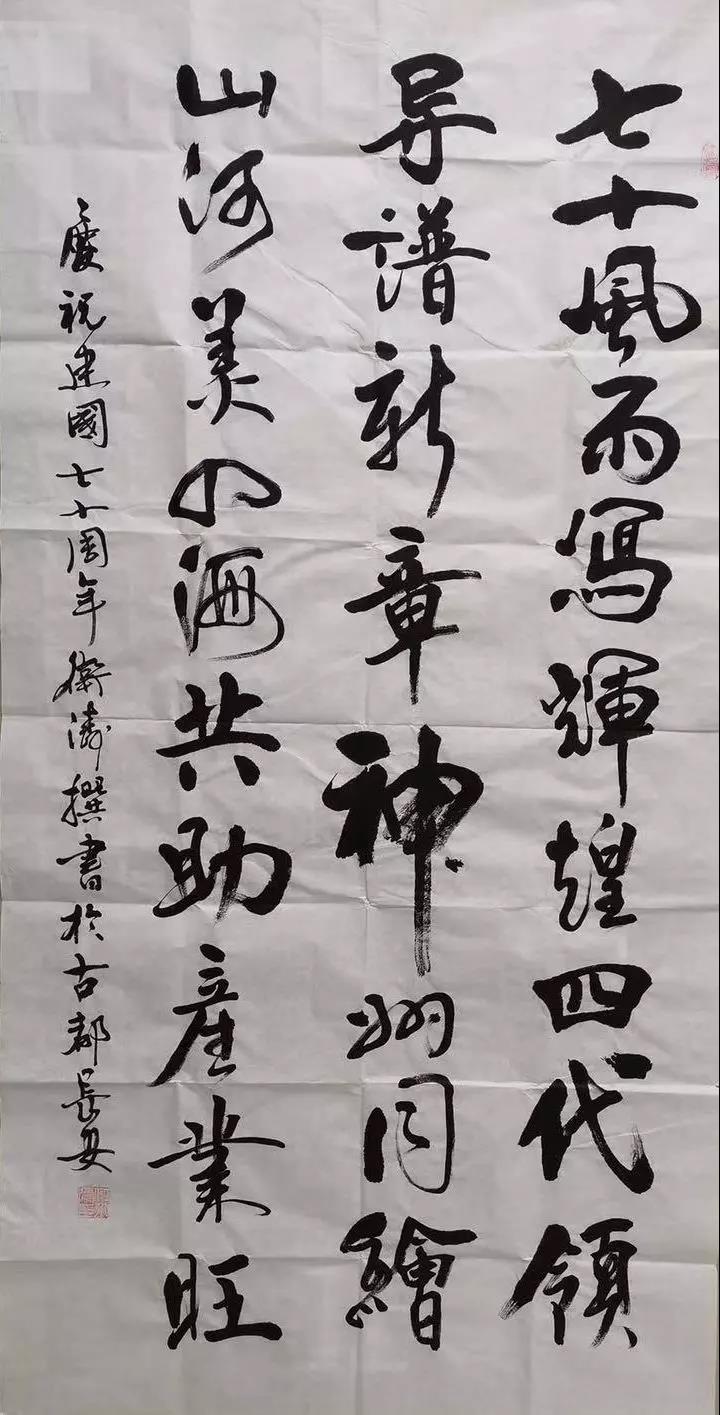 七十風雨寫輝煌四代領
导譜新章神州同繪
山河美四海共助產業旺
慶祝建國七十周年衛濤撰書於古都長安